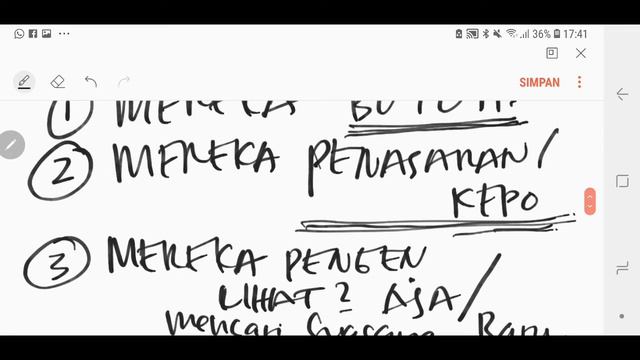 36% 17:41
SIMPAN
① MEREKA BUTUH.
② MEREKA PENASARAN/
KEPO
③ MEREKA PENGEN
LIHAT2 AJA/
mencari suasana Baru